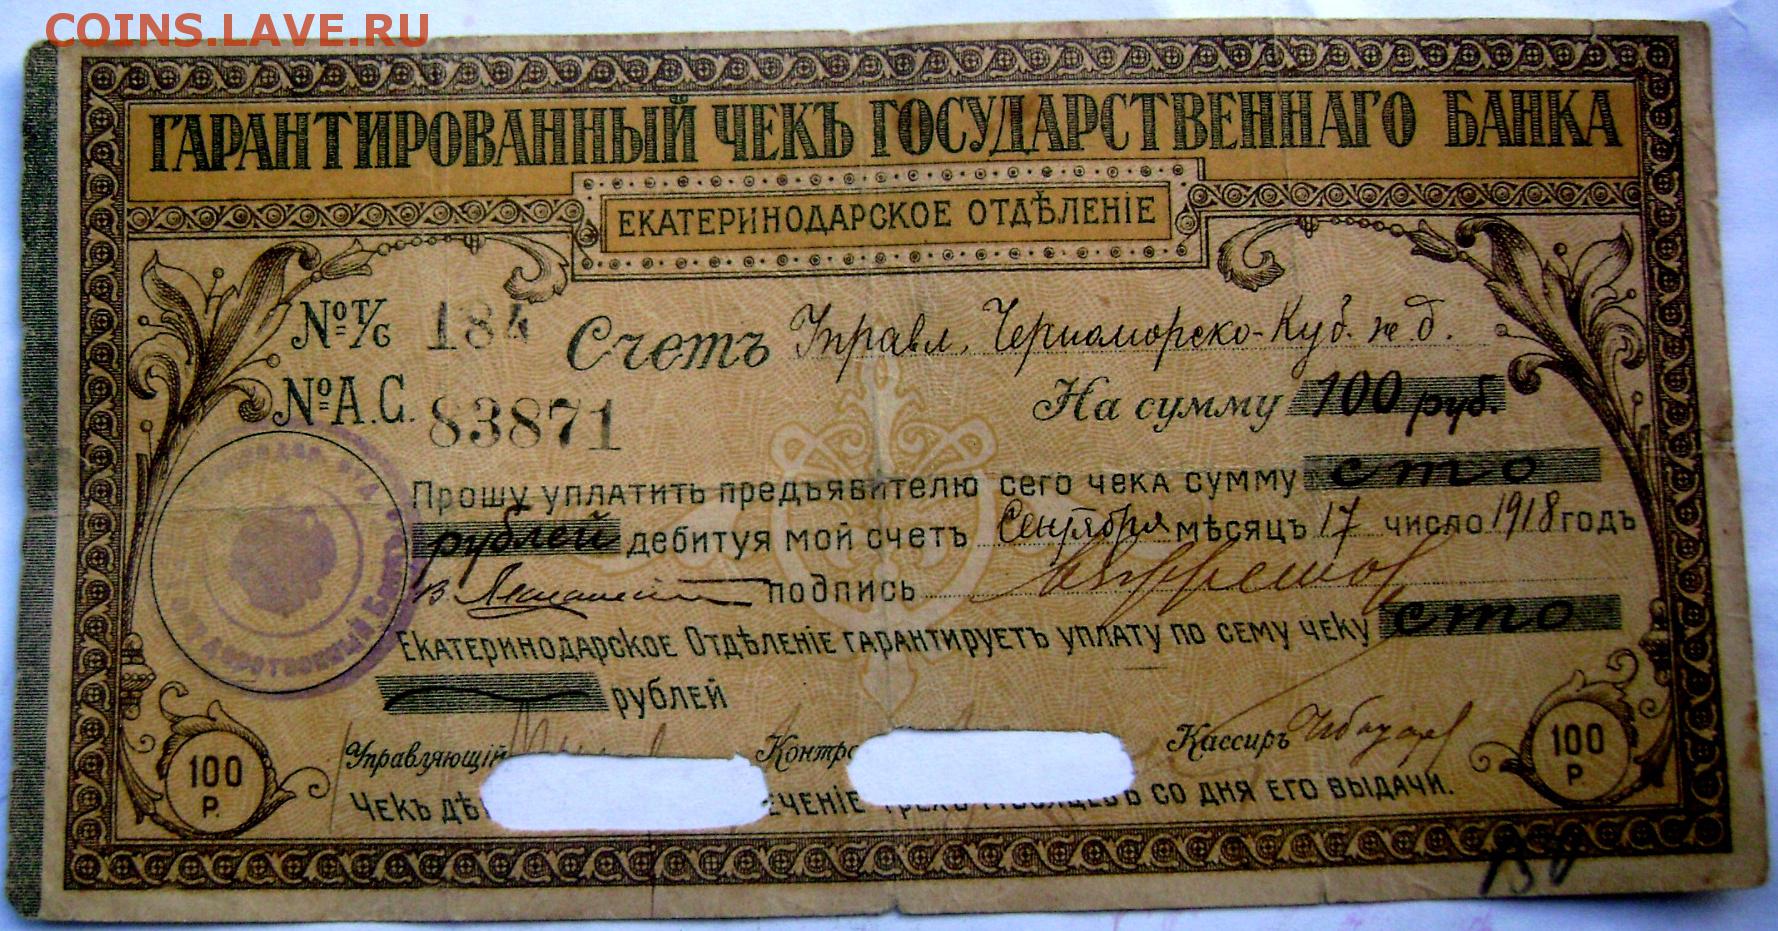 COINS.LAVE.RU
ГАРАНТИРОВАННЫЙ ЧЕКЪ ГОСУДАРСТВЕННАГО БАНКА
ЕКАТЕРИНОДАРСКОЕ ОТДѢЛЕНІЕ
№ Т/С 184 Счетъ Управл. Черноморско-Куб. ж.д.
№ А.С. 83871 На сумму 100 руб.
Прошу уплатить предъявителю сего чека сумму сто
рублей дебитуя мой счетъ Сентября мѣсяцъ 17 число 1918 годъ
подпись
Екатеринодарское Отдѣленіе гарантируетъ уплату по сему чеку сто
рублей
Управляющій Контро Кассиръ
100 Р. 100 Р.
Чекъ дѣ ечение трехъ мѣсяцевъ со дня его выдачи.